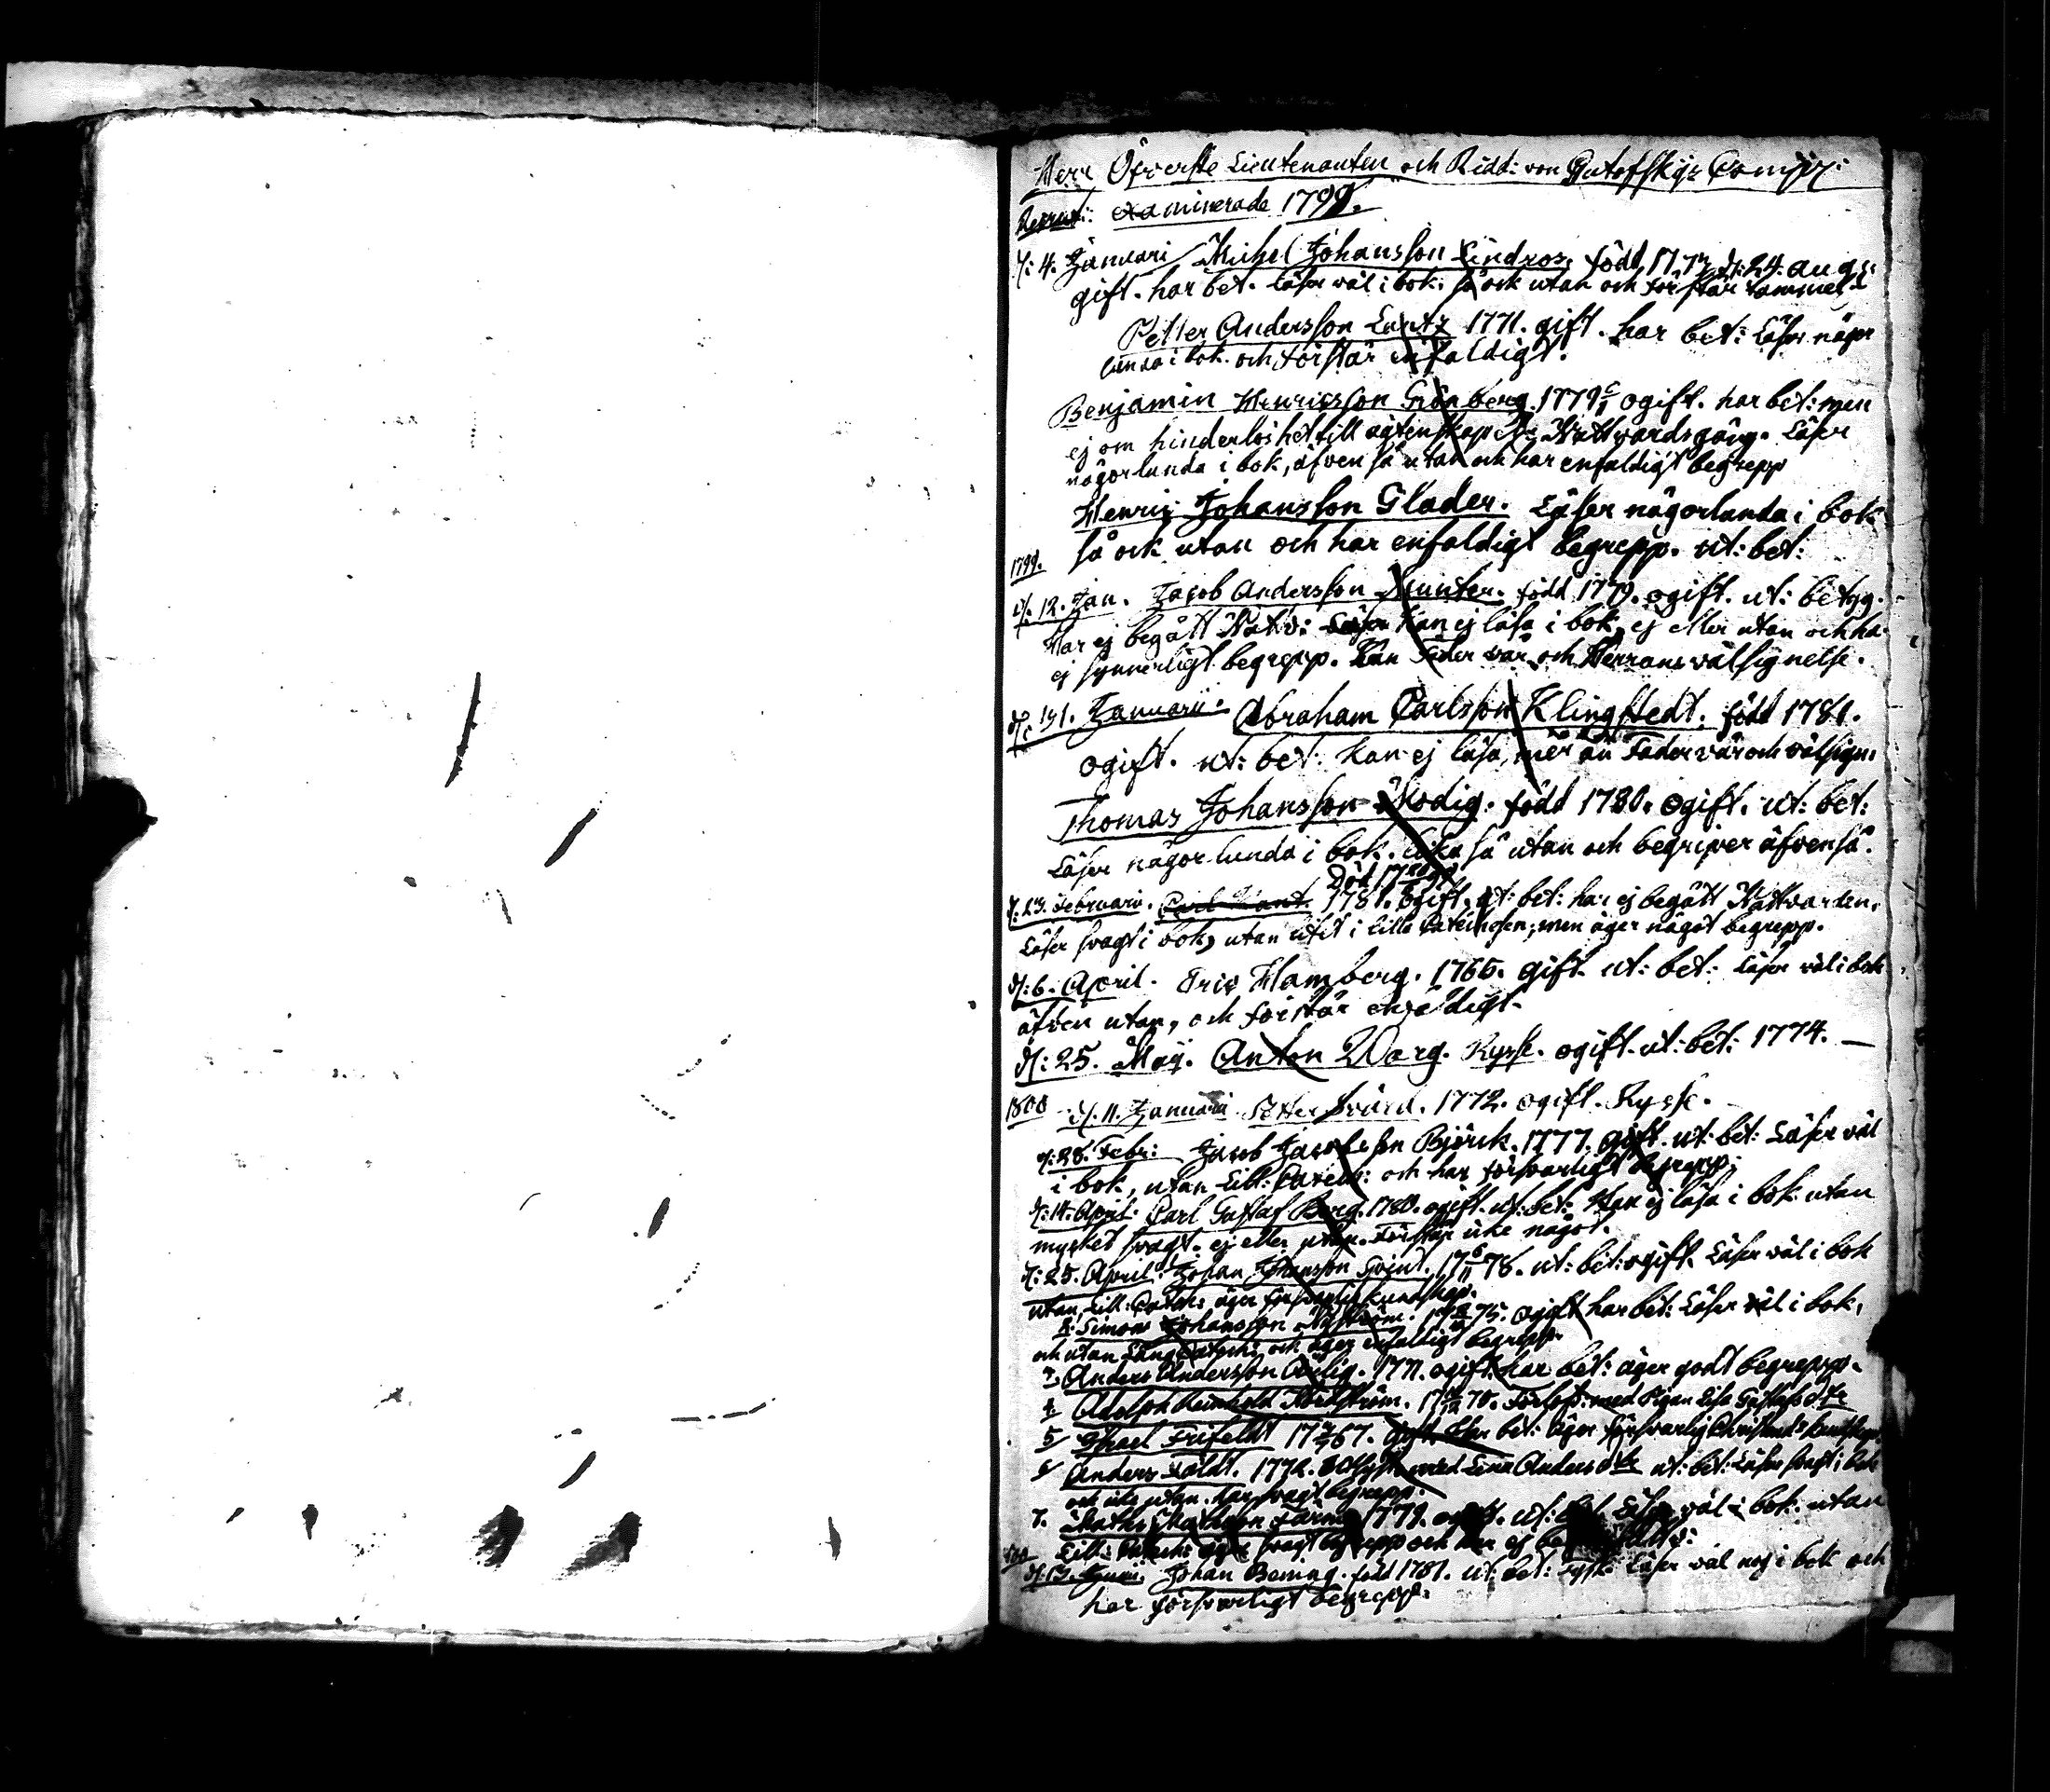 Herr Öfverste Lieutenanten och Ridd: von Gutofskys Comp:
Recrut: examinerade 1799.
d: 4. Januari Michel Johansson Lindros, född 1773 d: 24. aug:
gift. har bet. Läser väl i bok: så ock utan och förstår
Petter Andersson Lantz 1771. gift. har bet: Läser någor
lunda i bok och förstår enfaldigt.
Benjamin Henricsson Grönberg. 1779 ogift. har bet: men
ej om hinderlöshet till ägtenskap Nattvardsgång. Läser
någorlunda i bok, äfven så utan och har enfaldigt begrepp
Henric Johansson Glader. Läser någorlunda i bok
så ock utan och har enfaldigt begrepp. ut: bet:
1799.
d. 12. Jan. Jacob Andersson Munter. född 1779. ogift. ut: betyg.
Har ej begått Nattv: Kan ej läsa i bok, ej eller utan och ha
ej synnerligt begrepp. Kan Fader vår och Herrans välsignelse.
Januarii. Abraham Carlsson Klingstedt. född 1781.
ogift. ut: bet: Kan ej läsa, mer än Fader vår och välsign:
Thomas Johansson Modig. född 1780. ogift. ut: bet:
Läser någorlunda i bok. lika så utan och begriper äfvenså.
d: 23. Februarii. 1781. ogift, ut: bet: har ej begått Nattvarden.
Läser svagt i bok, utan litet i lilla Catechesen, men äger något begrepp.
d: 6. April. Eric Hamberg. 1765. gift. ut: bet: Läser väl i bok
äfven utan, och förstår enfaldigt.
d: 25. Maij. Anton Warg. Rysse. ogift. ut: bet: 1774.
1800 d. 11. Januarii Petter Svärd. 1772. ogift. Rysse.
d: 28. Febr: Jacob Jacobsson Björck. 1777. gift. ut: bet: Läser väl
i bok, utan Lill: Catech: och har försvarligt begrepp;
d: 14. April: Carl Gustaf Berg. 1780. ogift. ut: bet: Kan ej läsa i bok utan
mycket svagt. ej eller utan. Förstår icke något.
d: 25. April: Johan Johansson Qvint. 17 6/11 78. ut: bet: ogift. Läser väl i bok
utan, Lill: Catech: äger försvarlig kundskap.
2. Simon Johansson Nyström. 75. ogift har bet: Läser väl i bok,
och utan Lång Catech: och äger enfaldigt begrepp.
3. Anders Andersson Ärlig. 1771. ogift. har bet: äger godt begrepp.
4. Adolph Reinhold Nordström. 70. Förlof: med Pigan Lisa Gustafs dr
5 Israel Frifeldt 67. bet: äger försvarlig Christend: kundskap
6 Anders 1772. med Lena Anders dr ut: bet: Läser svagt i bok
och icke utan. har svagt begrepp.
7. 1779. ut: Läser väl i bok utan
Lill: Catech: äger svagt begrepp och har ej
d: 13. Junii. Johan Bening. född 1781. ut: bet: Läser väl nog i bok och
har försvarligt begrepp.